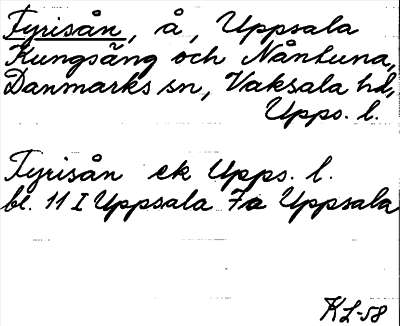 Fyrisån, å, Uppsala
Kungsäng och Nåntuna,
Danmarks sn, Vaksala hd,
Upps. l.
Fyrisån ek Upps. l.
bl. 11 I Uppsala 7a Uppsala
KL-58